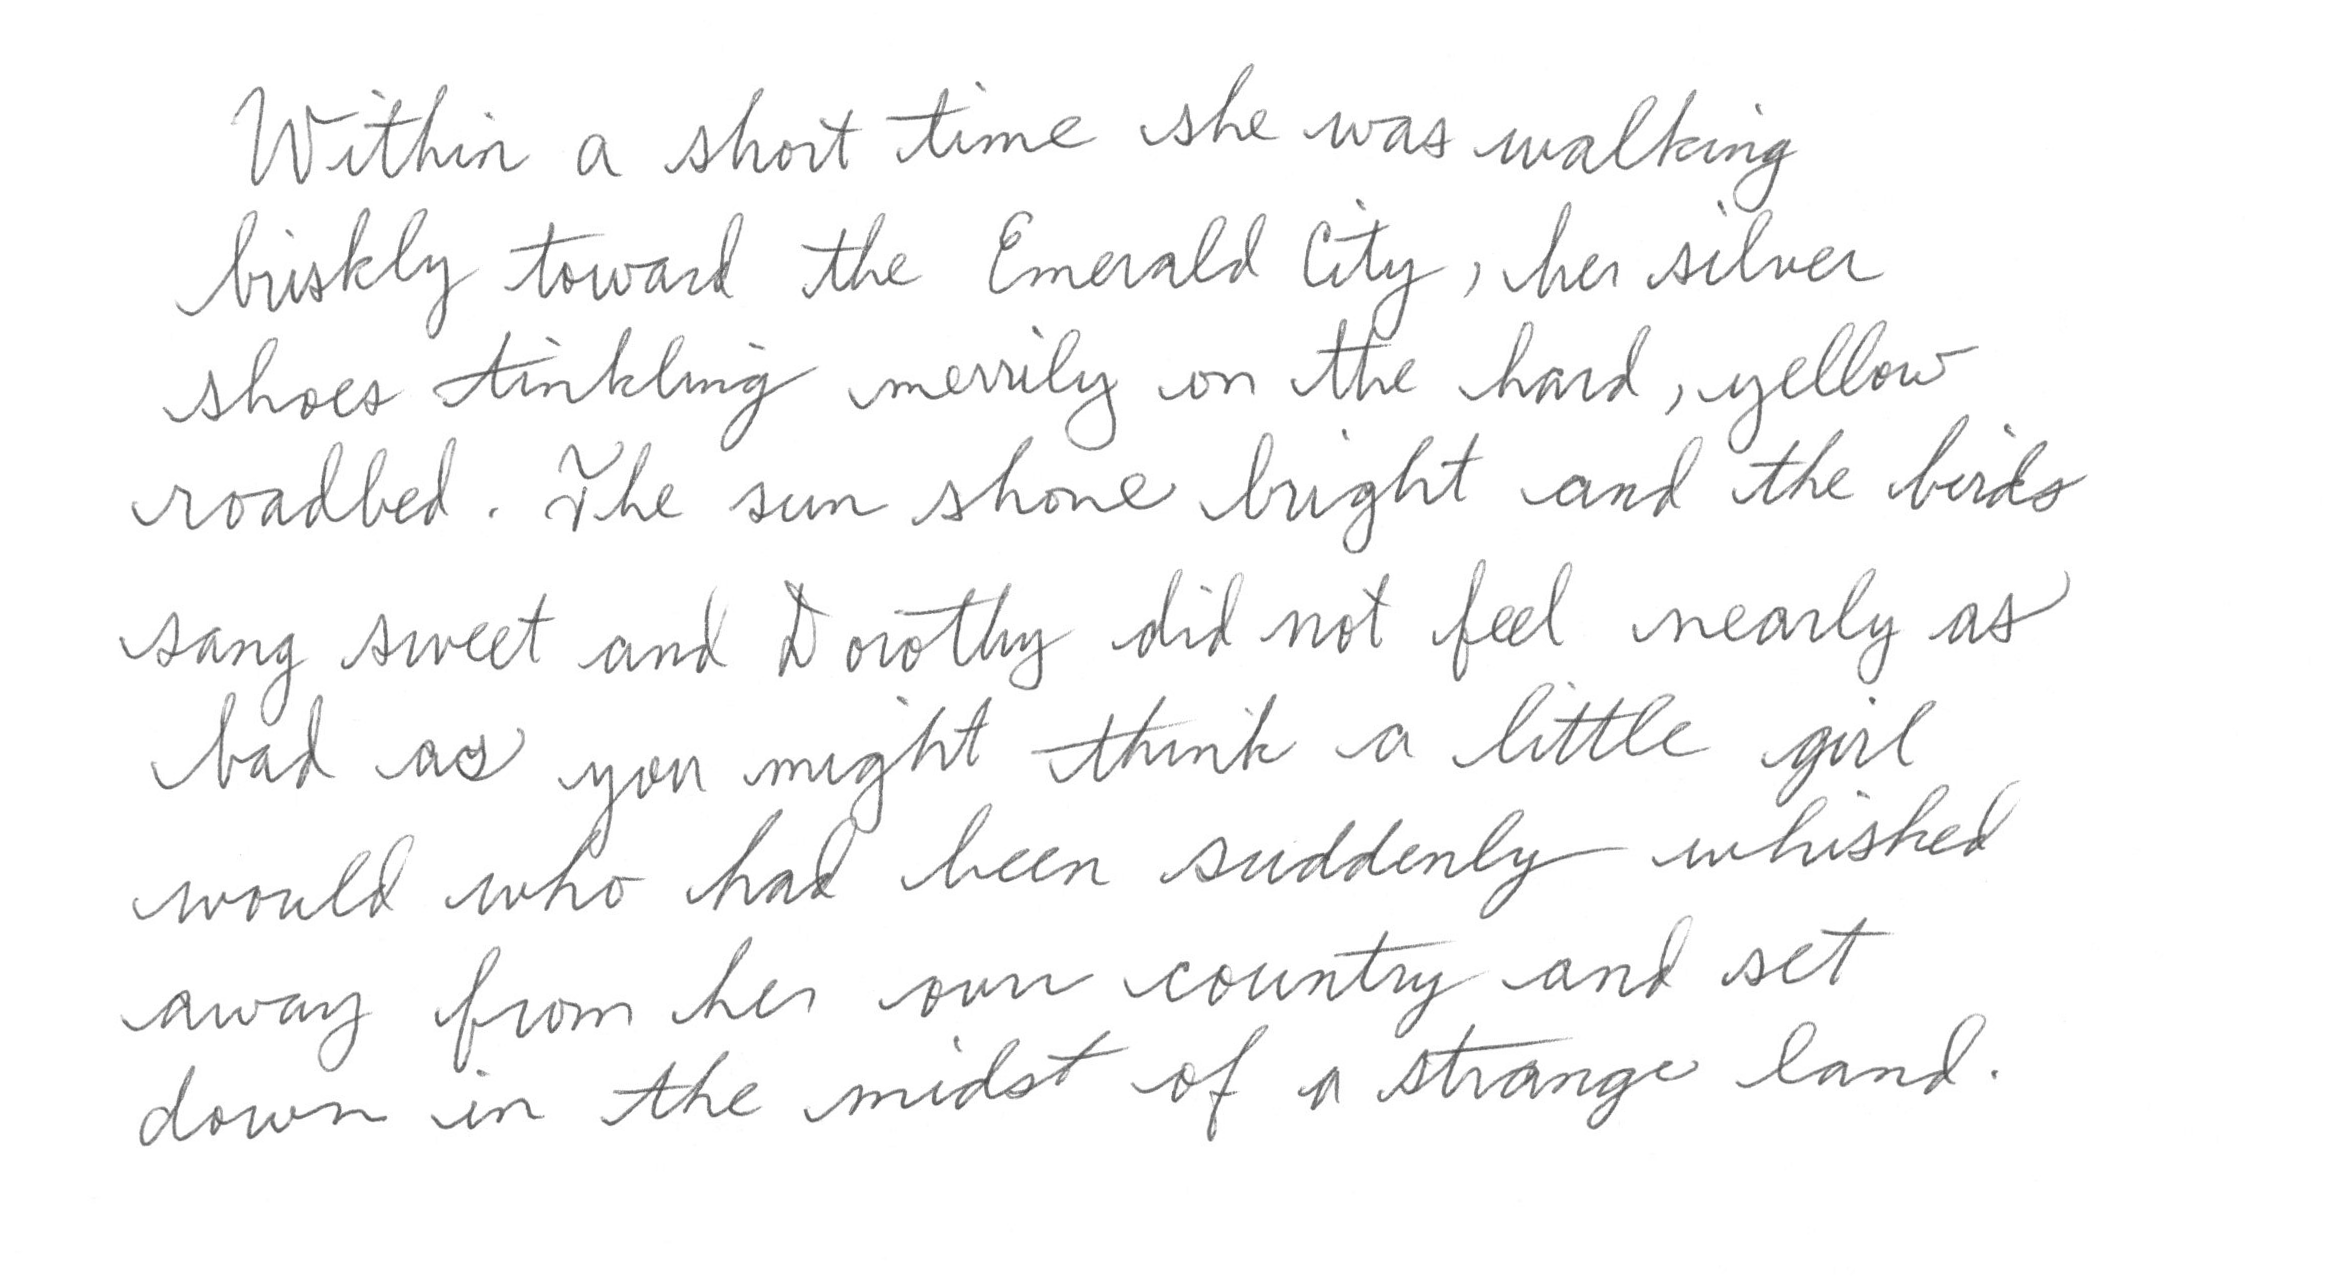 Within a short time she was walking
briskly toward the Emerald City, her silver
shoes tinkling merrily on the hard, yellow
roadbed. The sun shone bright and the birds
sang sweet and Dorothy did not feel nearly as
bad as you might think a little girl
would who had been suddenly whisked
away from her own country and set
down in the midst of a strange land.